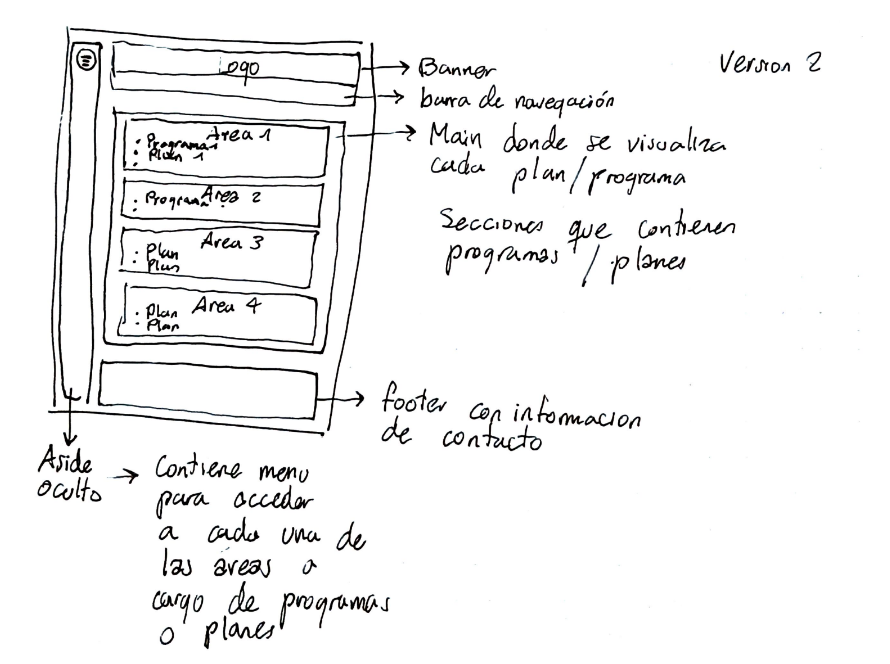 Version 2
Logo
Banner
barra de navegación
Area 1
: Programas
: Plan 1
Main donde se visualiza
cada plan/programa
Area 2
: Programa
Secciones que contienen
programas / planes
Area 3
: Plan
Plan
Area 4
: Plan
Plan
footer con informacion
de contacto
Aside
oculto
Contiene menu
para acceder
a cada una de
las áreas a
cargo de programas
o planes